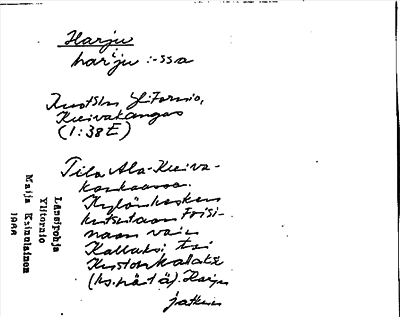 Harju
harju :-ssa
Ruotsin Ylitornio,
Kuivakangas
(1:38 E)
Tila Ala-Kuiva-
kankaassa.
Kylän
kutsutaan toisi-
naan vain
Kallaksi tai
(ks. tätä). Harju
jatkuu
Länsipohja
Ylitornio
Maija Keinolainen
1966